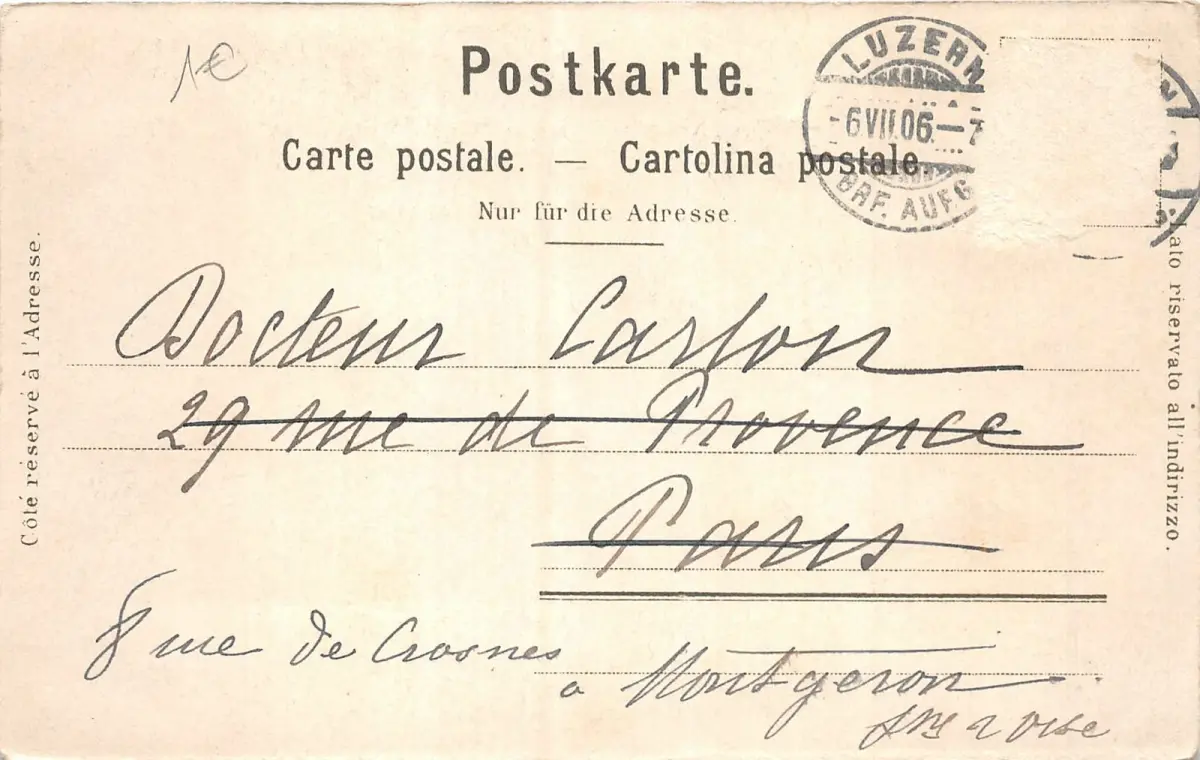 1€
Postkarte.
LUZERN
-6VII.06.-7
BRF. AUFG
Carte postale. — Cartolina postale.
Nur für die Adresse.
Côté réservé à l'Adresse.
lato riservato all'indirizzo.
Docteur Carlon
29 rue de Provence
Paris
8 rue de Crosnes
a Montgeron
Sne & Oise